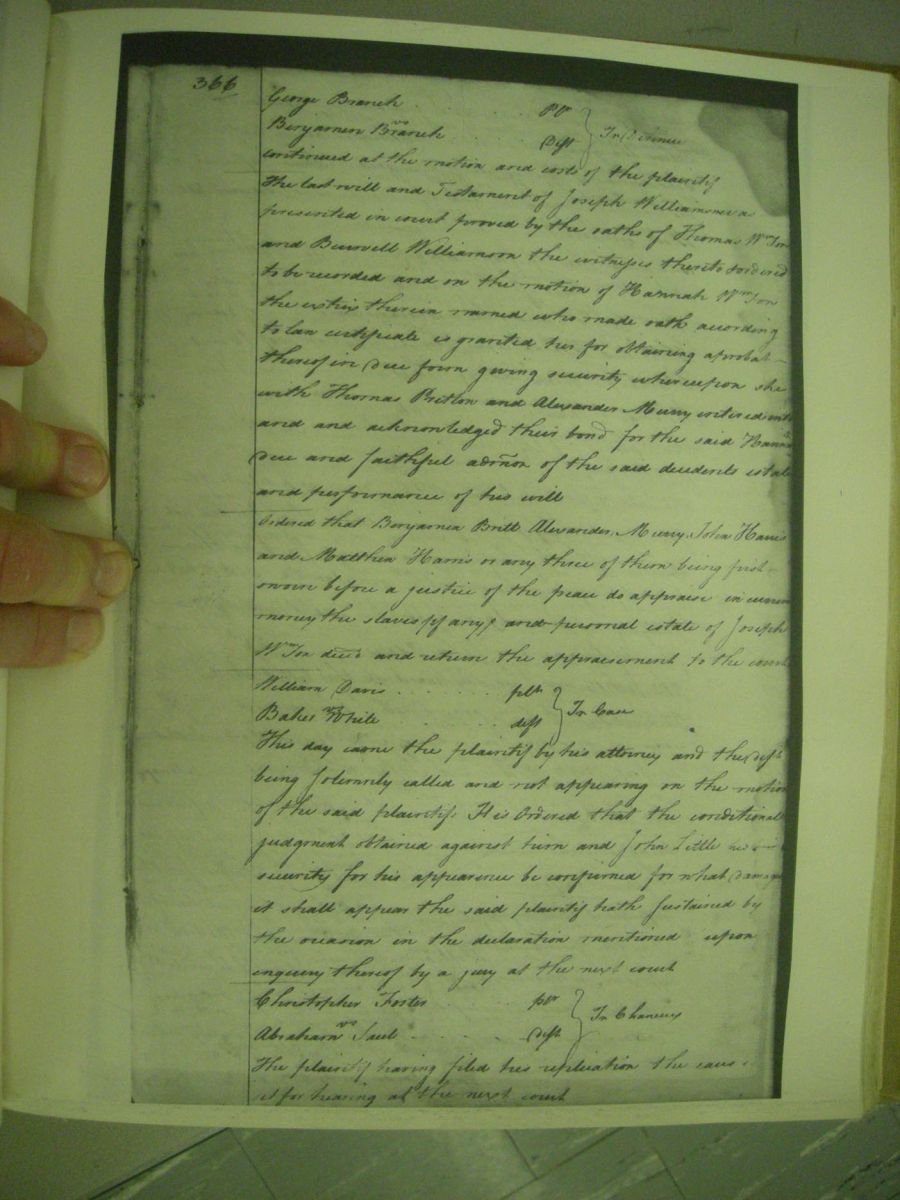 366
George Branch . . . . . Pltf
vs } In Detinue
Benjamen Branch . . . . . Deft
continued at the motion and costs of the plaintif
The last will and Testament of Joseph Williamson was
presented in court proved by the oaths of Thomas Wmson
and Burwell Williamson the witnesses thereto & ordered
to be recorded and on the motion of Hannah Wmson
the extrix therein named who made oath according
to law certificate is granted her for obtaining a probat
thereof in due form giving security whereupon she
with Thomas Britton and Alexander Murry entered into
and and acknowledged their bond for the said Hannahs
due and faithful admon of the said decedents estate
and performance of his will
Ordered that Benjamen Britt Alexander Murry John Harris
and Matthew Harris or any three of them being first
sworn before a justice of the peace do appraise in current
money the slaves if any and personal estate of Joseph
Wmson decd and return the appraisement to the court
William Davis . . . . . . pltf
vs } In Case
Baker White . . . . . deft
This day came the plaintif by his attorney and the deft
being solemnly called and not appearing on the motion
of the said plaintif. It is Ordered that the conditional
judgment obtained against him and John Little his
security for his appearence be confirmed for what damages
it shall appear the said plaintif hath sustained by
the occasion in the declaration mentioned upon
enquiry thereof by a jury at the next court
Christopher Foster . . . pltf
vs } In Chancery
Abraham Saul . . . . . deft
The plaintif having filed his replication the caus is
set for hearing at the next court